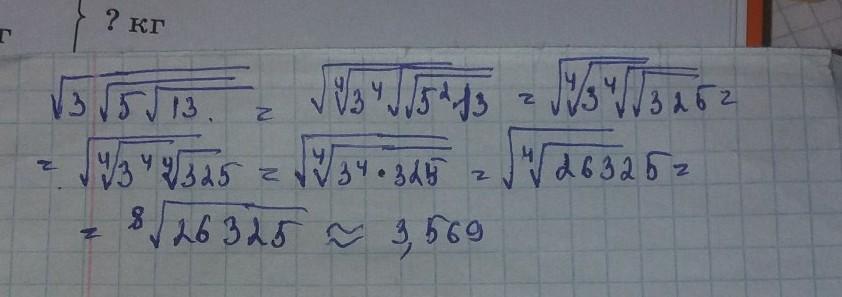 г } ? кг
√(3√(5√(13.))) = √(⁴√(3⁴)√(√(5²·13))) = √(⁴√(3⁴)√(√(325))) =
= √(⁴√(3⁴)⁴√(325)) = √(⁴√(3⁴•325)) = √(⁴√(26325)) =
= ⁸√(26325) ≈ 3,569